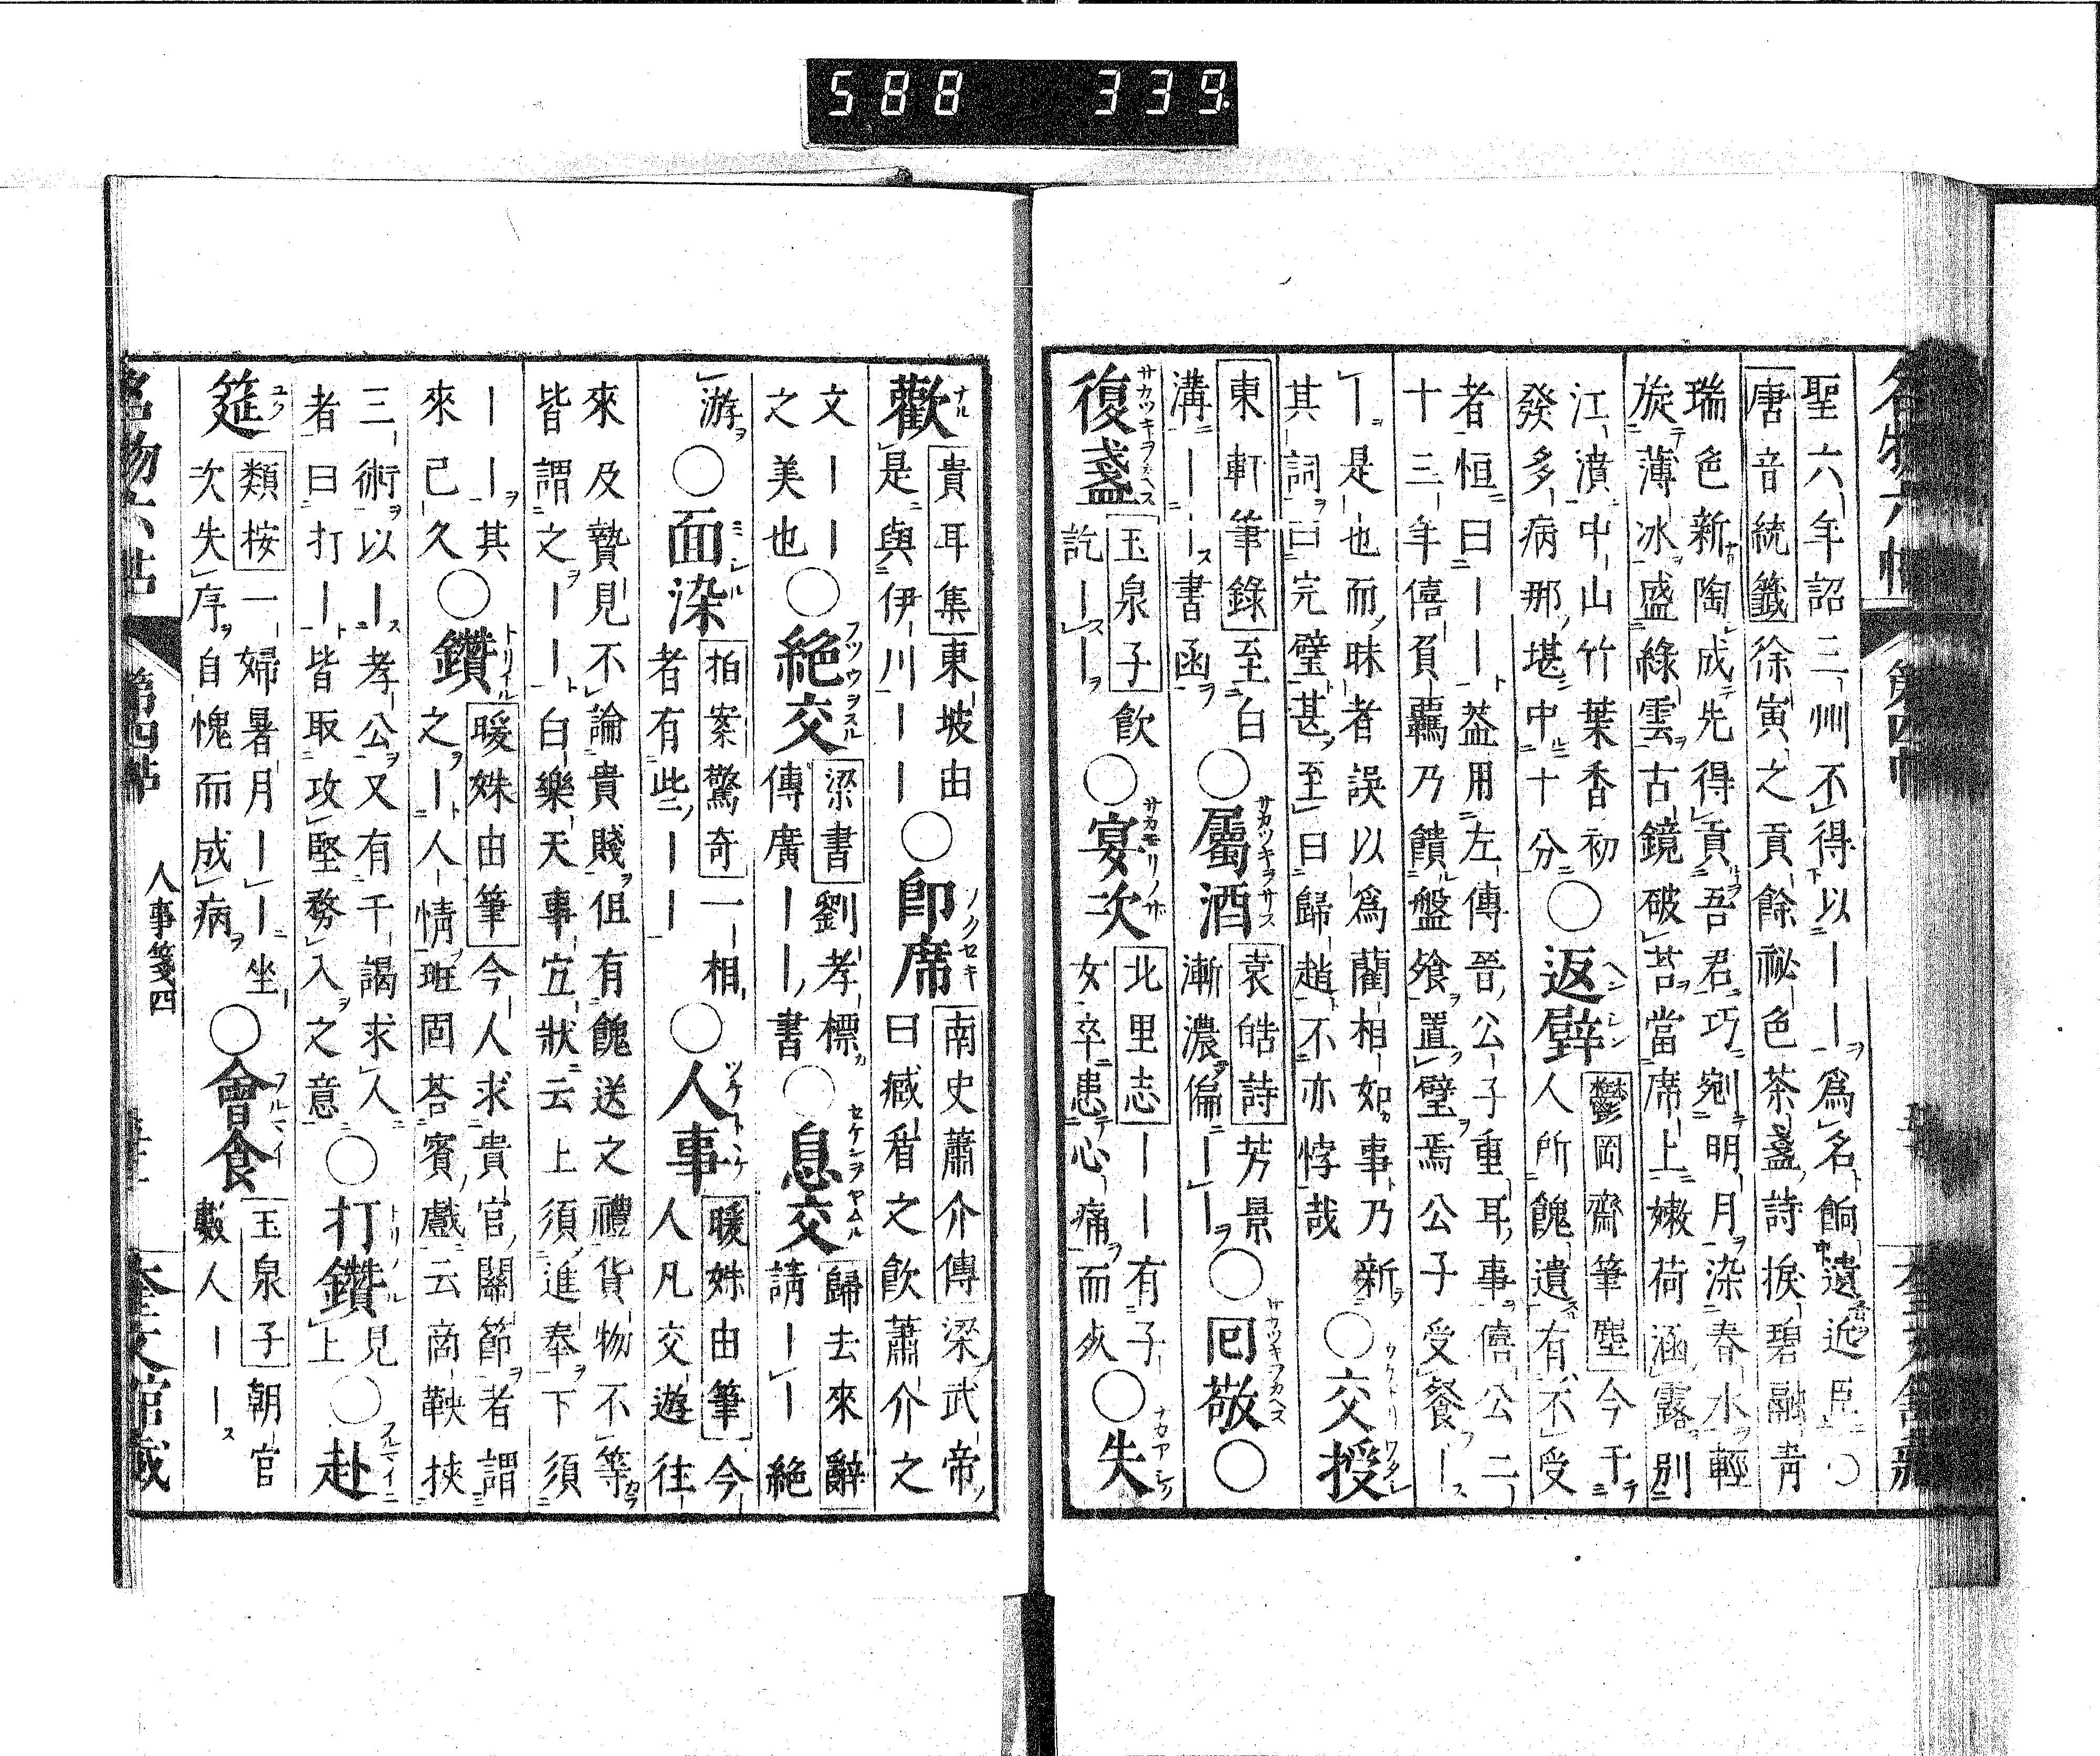 588 339
聖六年詔三州不得以——爲名餉遺近臣○
唐音統籤徐寅之貢餘祕色茶盞詩捩碧融青
瑞色新陶成先得貢吾君巧剜明月染春水輕
旋薄冰盛綠雲古鏡破苔當席上嫩荷涵露別
江濆中山竹葉香初
發多病那堪中十分○返璧
鬱岡齋筆麈今于
人所餽遺有不受
者恒曰——蓋用左傳晉公子重耳事僖公二
十三年僖負羈乃饋盤飧置璧焉公子受餐—
—是也而昧者誤以爲藺相如事乃
其詞曰完璧甚至曰歸趙不亦悖哉○交授
東軒筆錄至白
溝———書函○屬酒
袁皓詩芳景
漸濃偏——○回敬○
復盞
玉泉子飲
訖——○宴次
北里志——有子
女卒患心痛而夭○失
歡
貴耳集東坡由
是與伊川——○卽席
南史蕭介傳梁武帝
曰臧盾之飮蕭介之
文———
之美也○絶交
梁書劉孝標
傳廣——書○息交
歸去來辭
請——絶
游○面染
拍案驚奇一相
者有些——○人事
暖姝由筆今
人凡交遊往
來及贄見不論貴賤但有餽送之禮貨物不等
皆謂之——白樂天事宜狀云上須進奉下須
——其
來已久○鑽
暖姝由筆今人求貴官關節者謂
之—人情班固荅賓戲云商鞅挾
三術以—孝公又有干謁求人
者曰打—皆取攻堅務入之意○打鑽見上○赴
筵
類按一婦暑月——坐
次失序自愧而成病○會食
玉泉子朝官
數人——
人事箋四